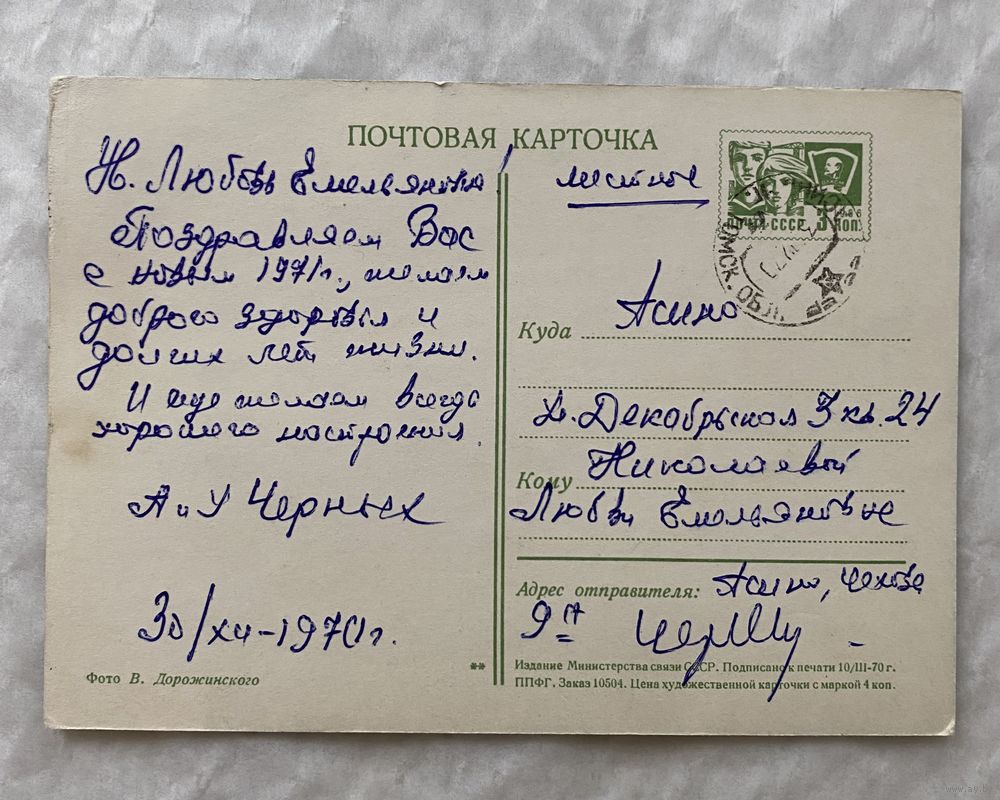 ПОЧТОВАЯ КАРТОЧКА
Н. Любовь Емельяновна!
Поздравляем Вас
с новым 1971г., желаем
доброго здоровья и
долгих лет жизни.
И еще желаем всегда
хорошего настроения.
А и У Черных
30/XII-1970г.
Фото В. Дорожинского
**
местное
ПОЧТА СССР 3 КОП.
1966
ТОМСК. ОБЛ.
Куда Асино
ул. Декабрьская 3 кв. 24
Кому Николаевой
Любви Емельяновне
Адрес отправителя: Асино, Чехова
9а
Издание Министерства связи СССР. Подписано к печати 10/III-70 г.
ППФГ. Заказ 10504. Цена художественной карточки с маркой 4 коп.
www.ay.by